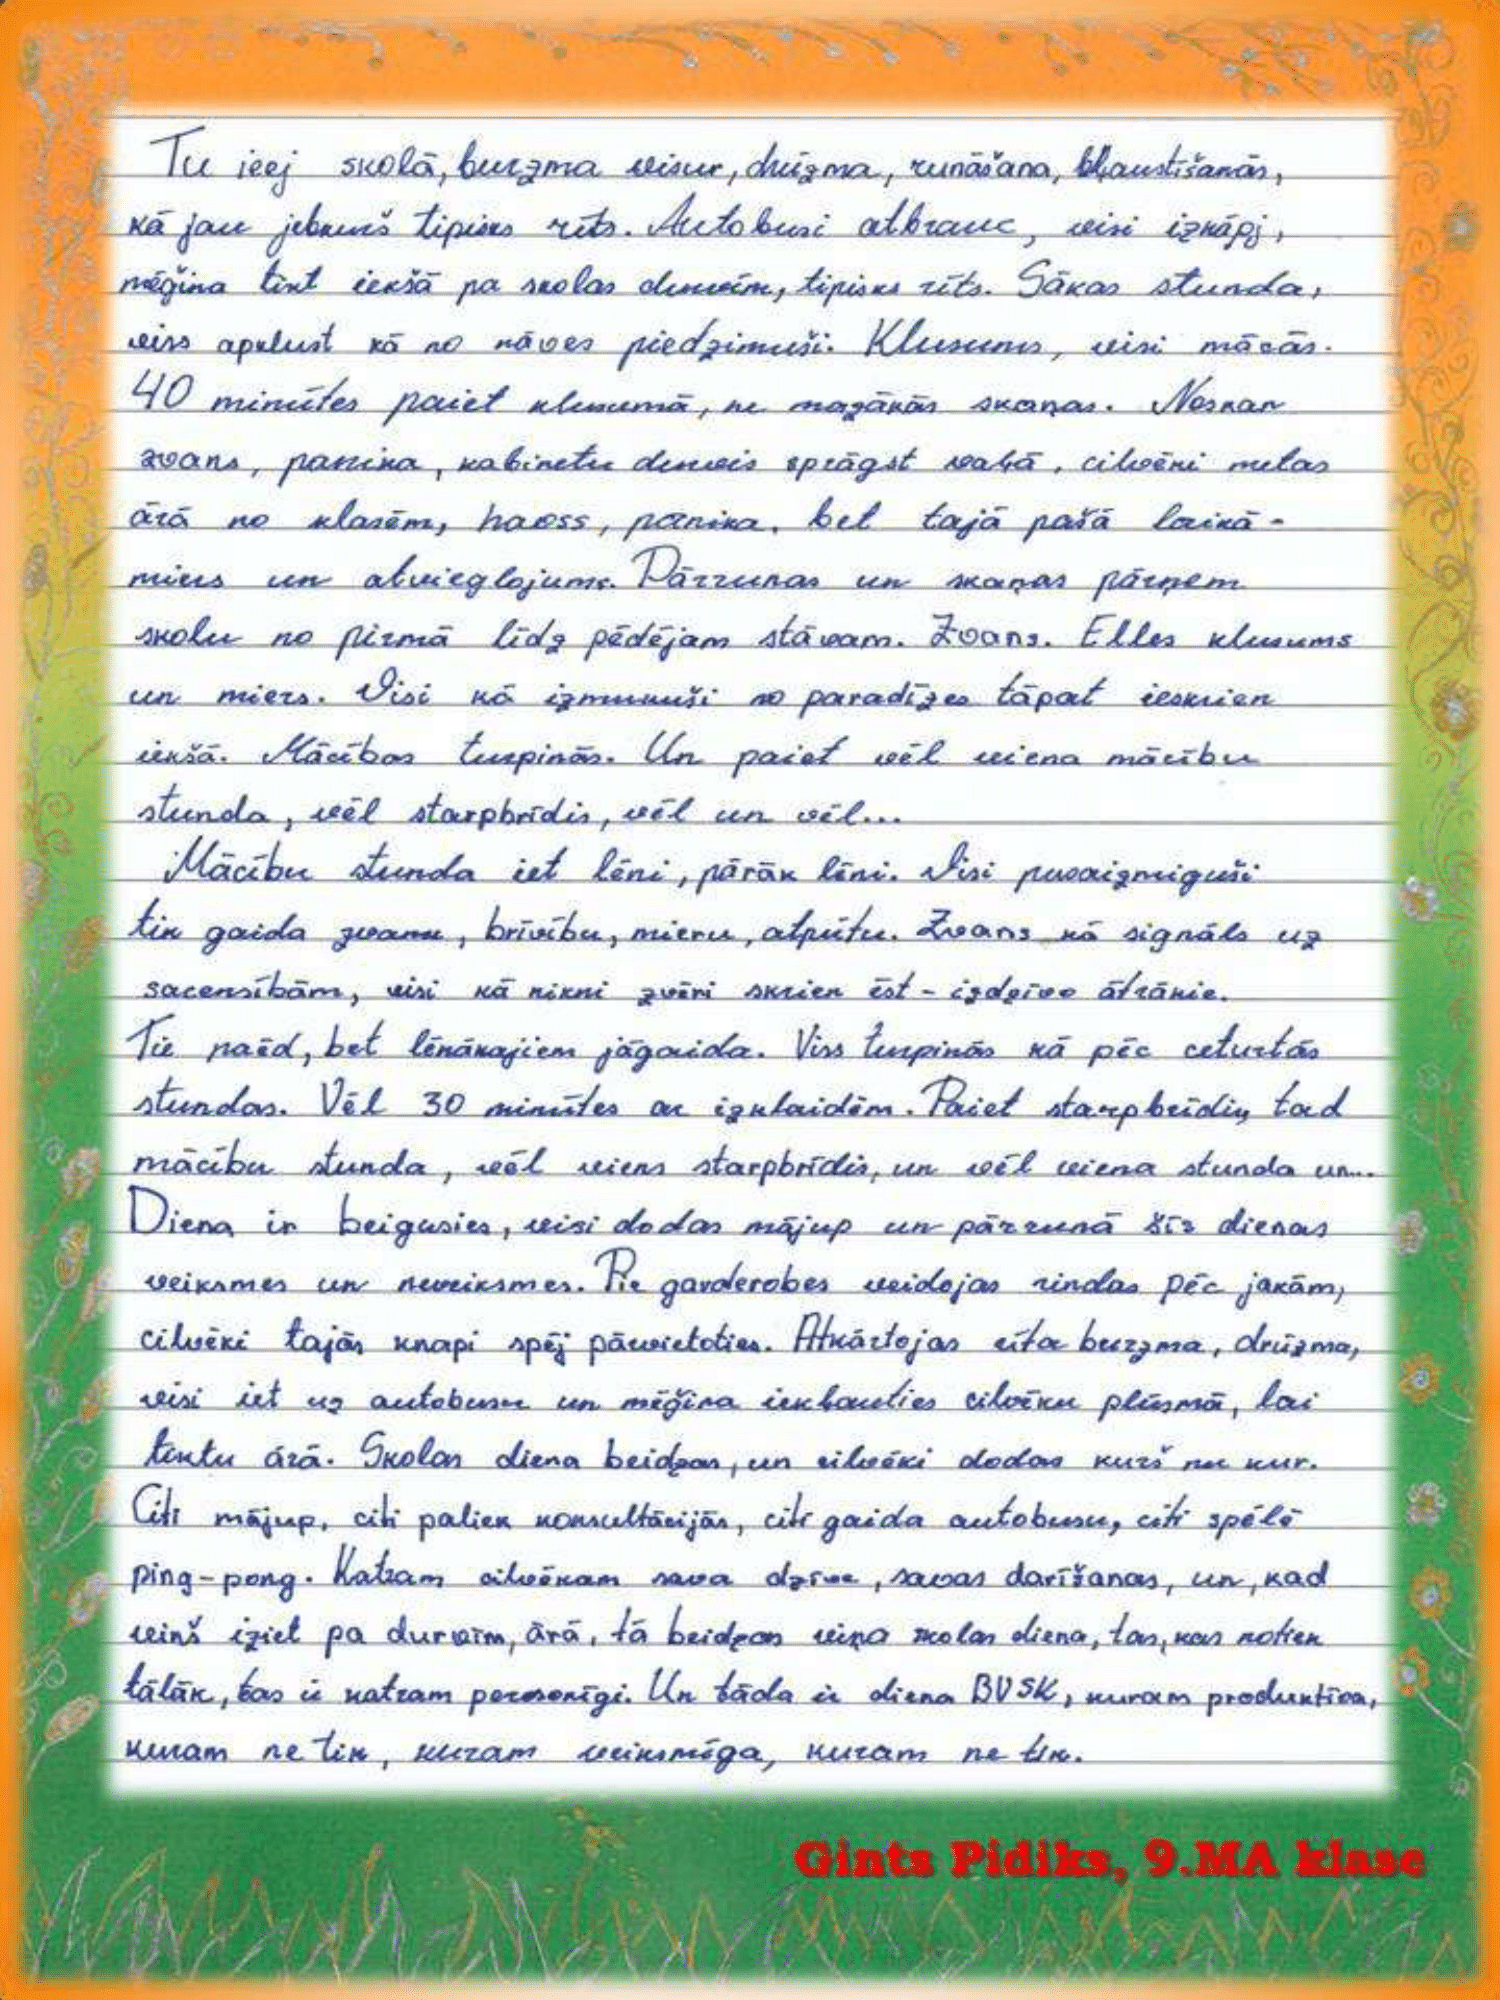 Tu ieej skolā, burzma visur, drūzma, runāšana, kļaustīšanās,
kā jau jebkurš tipisks rīts. Autobusi atbrauc, visi izkāpj,
mēģina tikt iekšā pa skolas durvīm, tipisks rīts. Sākas stunda,
viss apklust kā no nāves piedzimuši. Klusums, visi mācās.
40 minūtes paiet klusumā, ne mazākās skaņas. Noskan
zvans, panika, kabinetu durvis sprāgst vaļā, cilvēki metas
ārā no klasēm, haoss, panika, bet tajā pašā laikā -
miers un atvieglojums. Pārrunas un skaņas pārņem
skolu no pirmā līdz pēdējam stāvam. Zvans. Elles klusums
un miers. Visi kā izmukuši no paradīzes tāpat ieskrien
iekšā. Mācības turpinās. Un paiet vēl viena mācību
stunda, vēl starpbrīdis, vēl un vēl...
Mācību stunda iet lēni, pārāk lēni. Visi pusaizmiguši
tik gaida zvanu, brīvību, mieru, atpūtu. Zvans kā signāls uz
sacensībām, visi kā nikni zvēri skrien ēst - izdzīvo ātrākie.
Tie paēd, bet lēnākajiem jāgaida. Viss turpinās kā pēc ceturtās
stundas. Vēl 30 minūtes ar izklaidēm. Paiet starpbrīdis, tad
mācību stunda, vēl viens starpbrīdis, un vēl viena stunda un...
Diena ir beigusies, visi dodas mājup un pārrunā šīs dienas
veiksmes un neveiksmes. Pie garderobes veidojas rindas pēc jakām,
cilvēki tajās knapi spēj pārvietoties. Atkārtojas rīta burzma, drūzma,
visi iet uz autobusu un mēģina iekļauties cilvēku plūsmā, lai
tiktu ārā. Skolas diena beidzas, un cilvēki dodas kurš nu kur.
Citi mājup, citi paliek konsultācijās, citi gaida autobusu, citi spēlē
ping-pong. Katram cilvēkam sava dzīve, savas darīšanas, un, kad
viņš iziet pa durvīm, ārā, tā beidzas viņa skolas diena, tas, kas notiek
tālāk, tas ir katram personīgi. Un tāda ir diena BVSK, kuram produktīva,
kuram ne tik, kuram veiksmīga, kuram ne tik.
Gints Pidiks, 9.MA klase